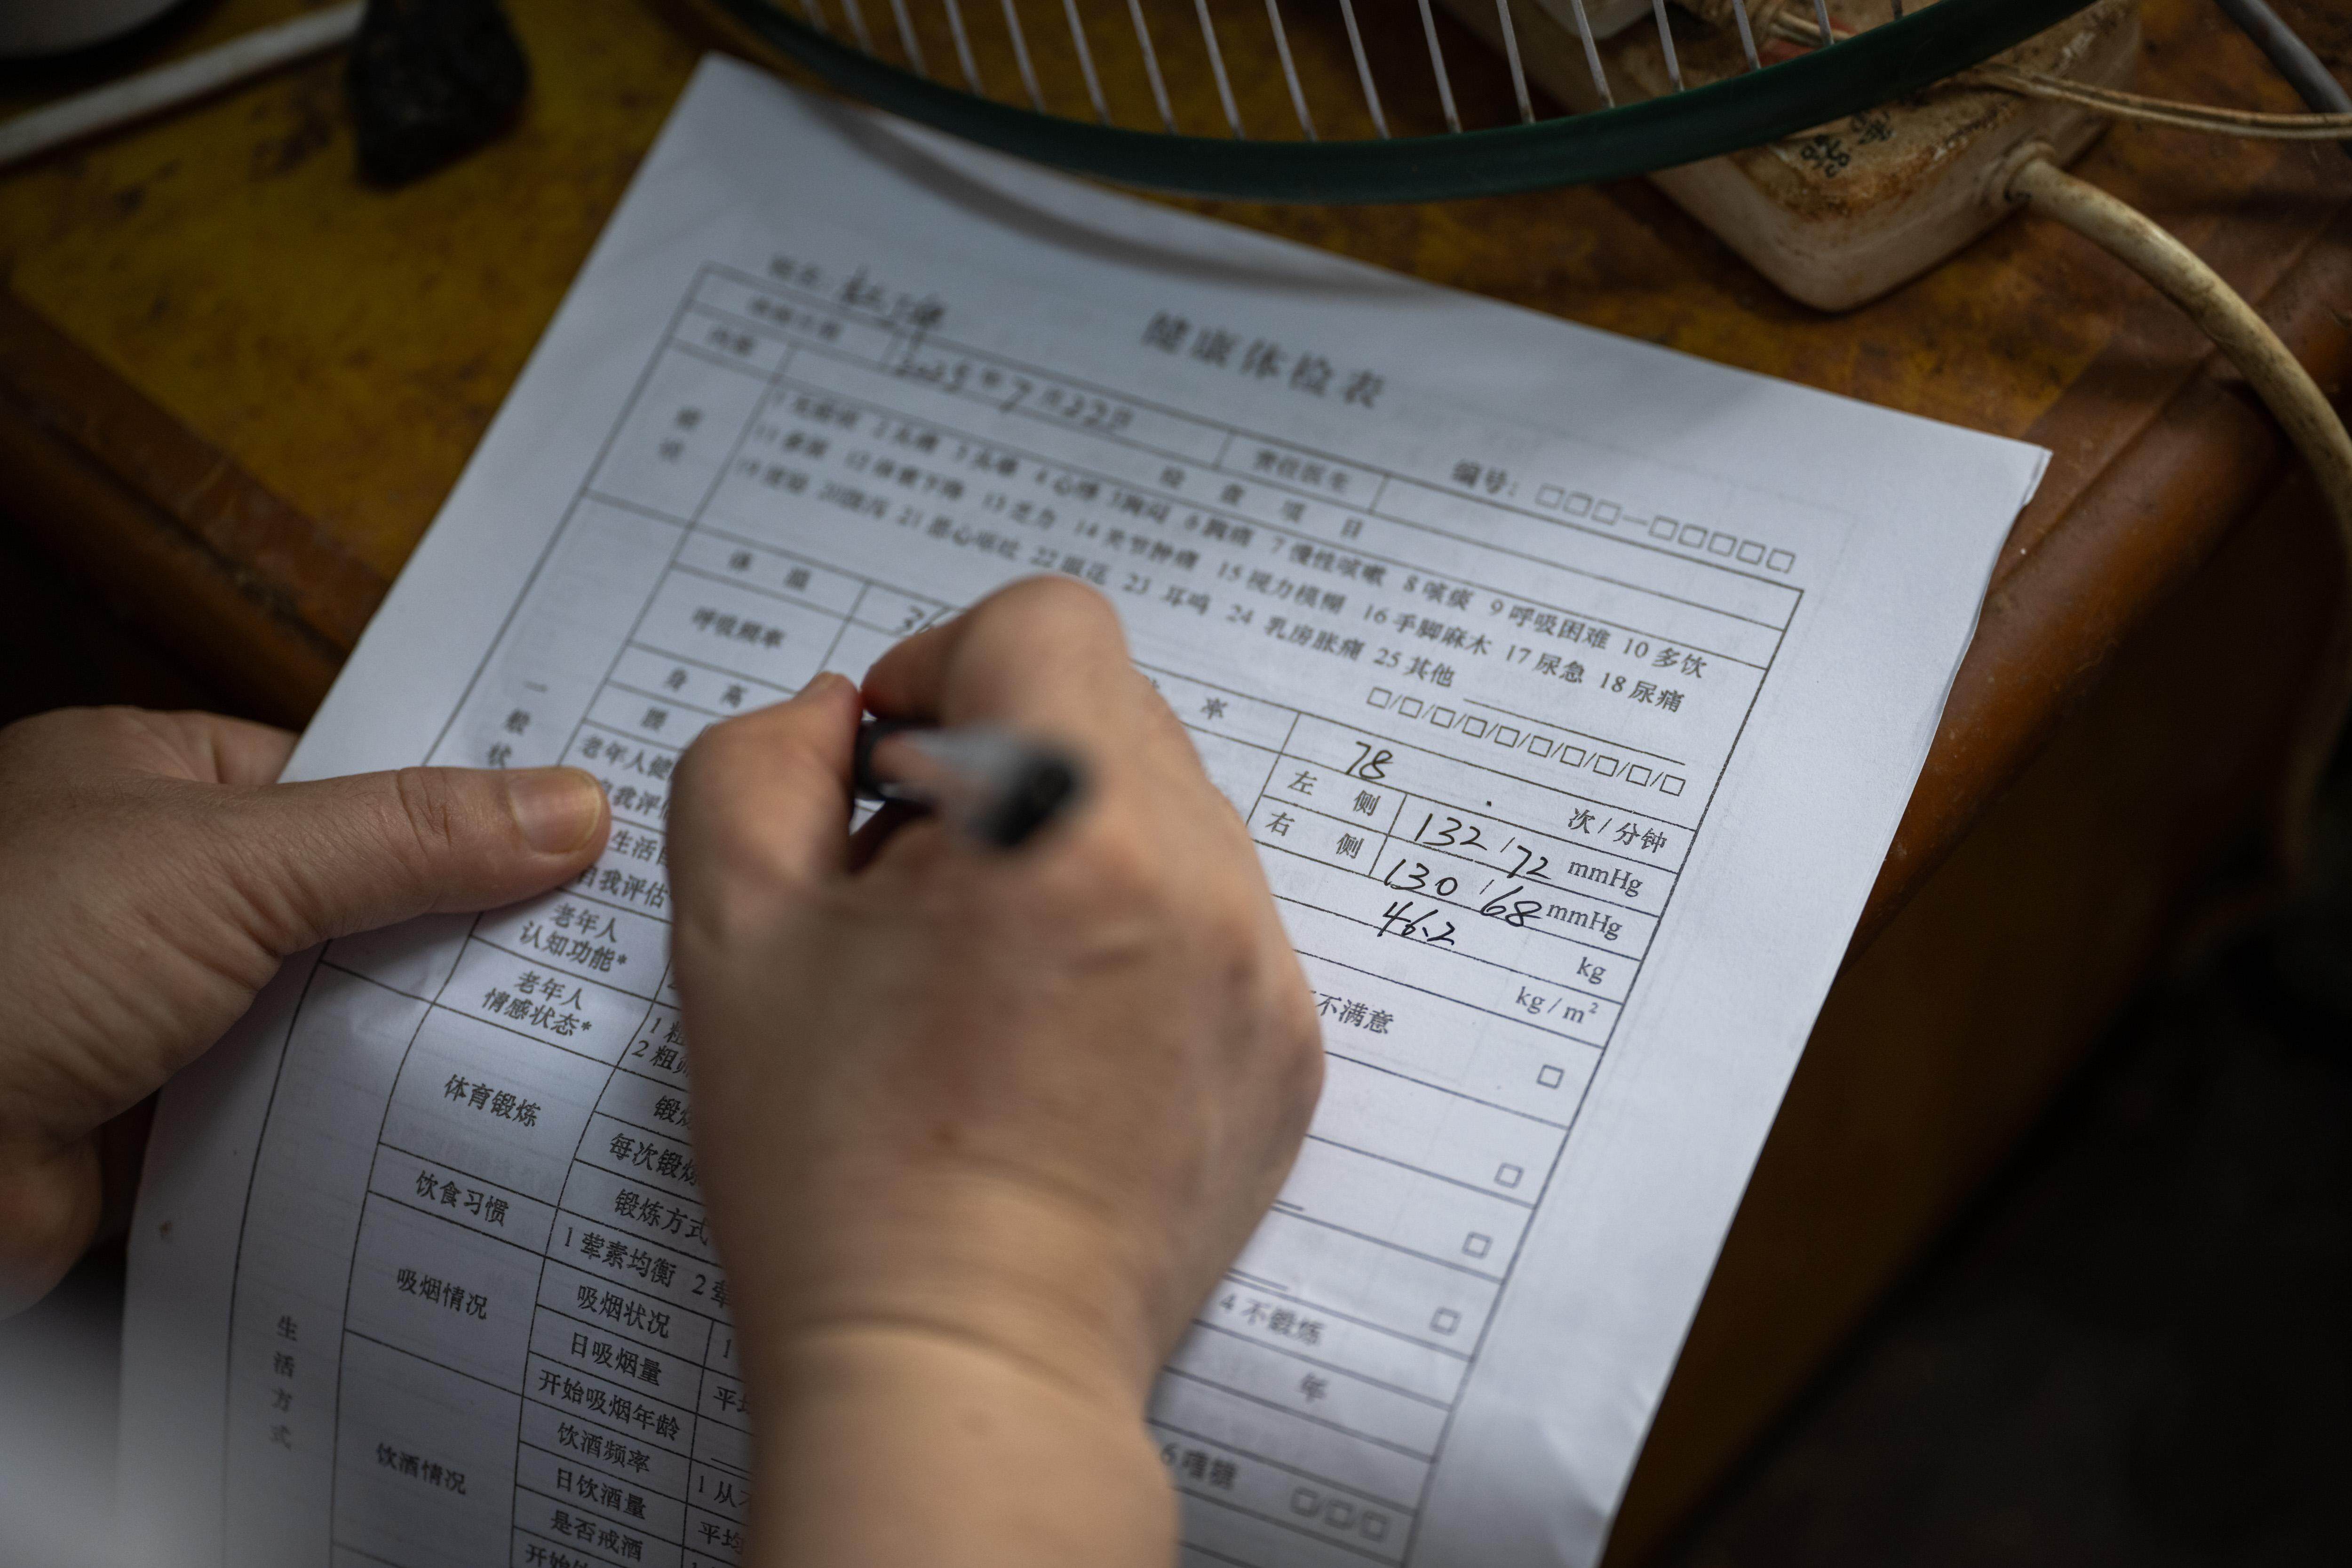 健康体检表
姓名：
编号：□□□-□□□□□
2025年7月22日
责任医生
内容
检 查 项 目
症状
1 无症状 2 头痛 3 头晕 4 心悸 5 胸闷 6 胸痛 7 慢性咳嗽 8 咳痰 9 呼吸困难 10 多饮
11 多尿 12 体重下降 13 乏力 14 关节肿痛 15 视力模糊 16 手脚麻木 17 尿急 18 尿痛
19 便秘 20 腹泻 21 恶心呕吐 22 眼花 23 耳鸣 24 乳房胀痛 25 其他
□/□/□/□/□/□/□/□/□/□
一般状
体 温
36
率
78
次/分钟
呼吸频率
左 侧
132/72 mmHg
右 侧
130/68 mmHg
身 高
46.2
kg
腰
kg/m²
老年人健
自我评估
不满意
□
生活自
自我评估
□
老年人
认知功能*
□
老年人
情感状态*
1 粗
2 粗
□
生活方式
体育锻炼
锻炼
4 不锻炼
每次锻炼
年
锻炼方式
饮食习惯
1 荤素均衡 2 荤
6 嗜糖
□/□/□
吸烟情况
吸烟状况
1
日吸烟量
平均
开始吸烟年龄
饮酒情况
饮酒频率
1 从不
日饮酒量
平均
是否戒酒
1
开始饮